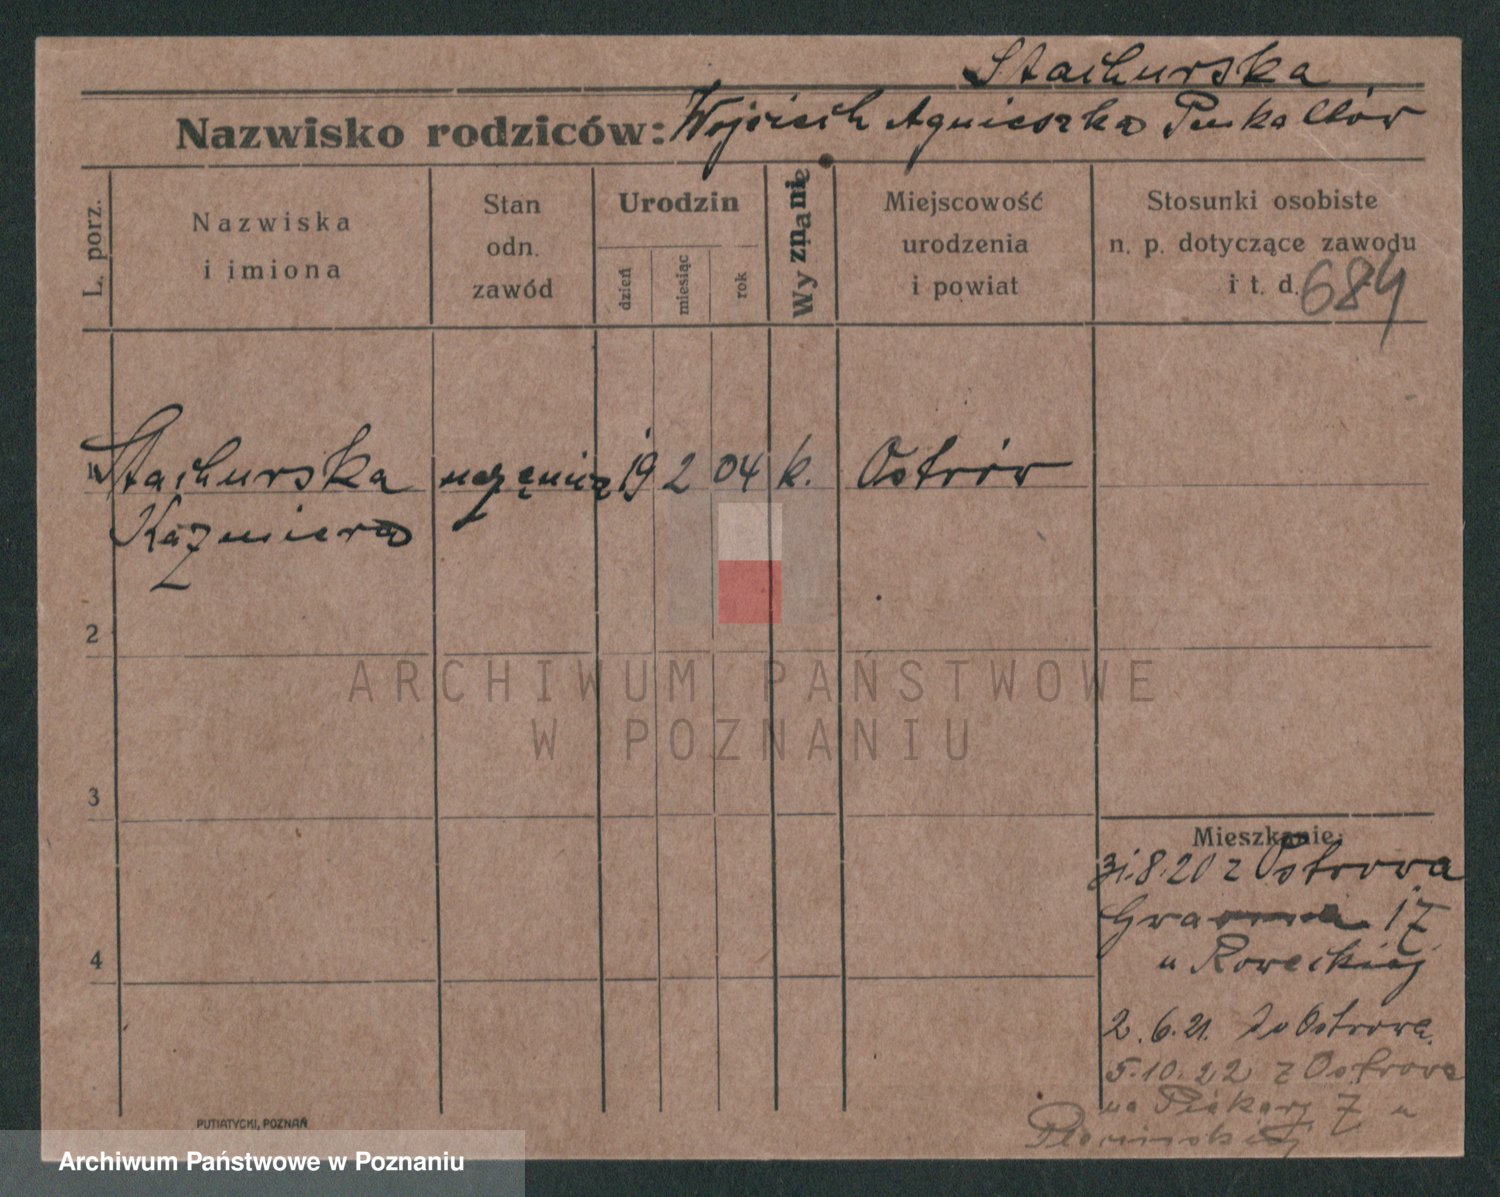 Stachurska
Nazwisko rodziców: Wojciech Agnieszka
L. porz.
Nazwiska
i imiona
Stan
odn.
zawód
Urodzin
dzień
miesiąc
rok
Wyznanie
Miejscowość
urodzenia
i powiat
Stosunki osobiste
n. p. dotyczące zawodu
i t. d. 684
1 Stachurska uczenica 19 2 04 k. Ostrów
Kazmiera
2
3
4
Mieszkanie:
31.8.20 z Ostrowa
17
u Roweckiej
2.6.21. do Ostrowa.
5.10.22 z Ostrowa
na Piekary 7 u
PUTIATYCKI, POZNAŃ
ARCHIWUM PAŃSTWOWE
W POZNANIU
Archiwum Państwowe w Poznaniu